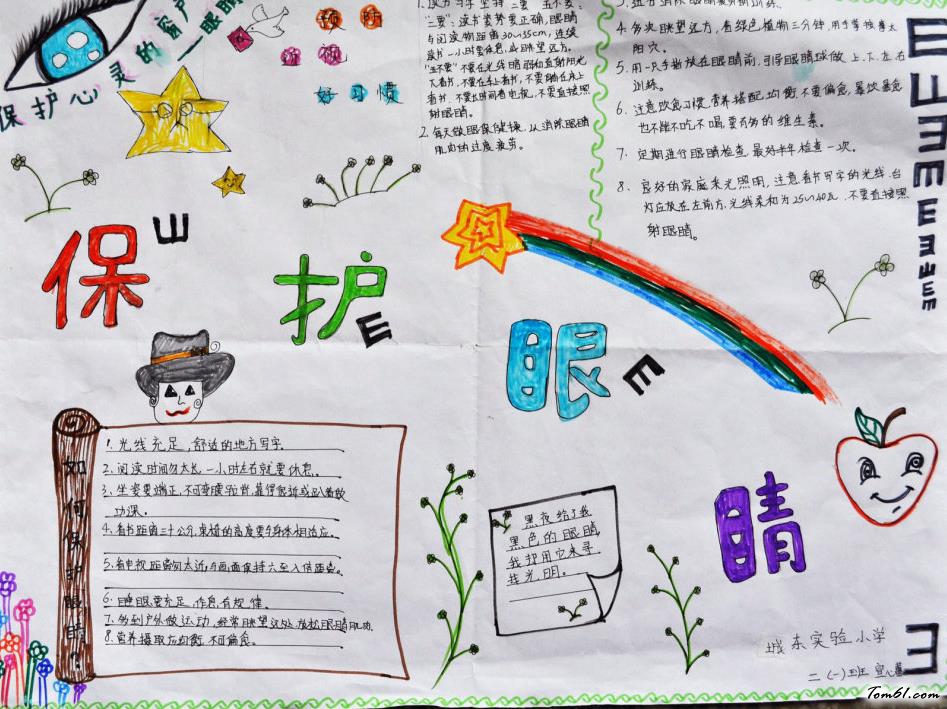 保护心灵的窗户
——眼睛
预防
近视
好习惯
与阅读物距离30~35cm,连续
读书一小时要休息,或眺望远方。
"三不要"不在光线暗弱和直射阳光
下看书,不要在车上看书,不要躺在床上
看书,不要长时间看电视,不要直接照
射眼睛。
2. 每天做眼保健操,以消除眼睛
肌肉的过度疲劳。
4. 多次眺望远方,看绿色植物三分钟,用手掌按摩太
阳穴。
5. 用一只手指放在眼睛前,引导眼睛球做上.下.左.右
训练。
6. 注意饮食习惯,营养搭配,均衡,不要偏食,暴饮暴食
也不能不吃,不喝,要有多的维生素。
7. 定期进行眼睛检查,最好半年检查一次。
8. 良好的家庭采光照明,注意看书写字的光线.台
灯应放在左前方,光线柔和为25~40瓦.不要直接照
射眼睛。
保护眼睛
如何保护眼睛?
1. 光线充足,舒适的地方写字。
2. 阅读时间勿太长一小时左右就要休息。
3. 坐姿要端正,不可弯腰驼背,靠得很近或趴着做
功课。
4. 看书距离三十公分,桌椅的高度要与身体相适应。
5. 看电视距离勿太近,与画面保持六至八倍距离。
6. 睡眠要充足,作息有规律。
7. 多到户外做运动,经常眺望远处,放松眼睛肌肉。
8. 营养摄取应均衡,不可偏食。
黑夜给了我
黑色的眼睛,
我却用它来寻
找光明。
城东实验小学
二(一)班
Tom61.com